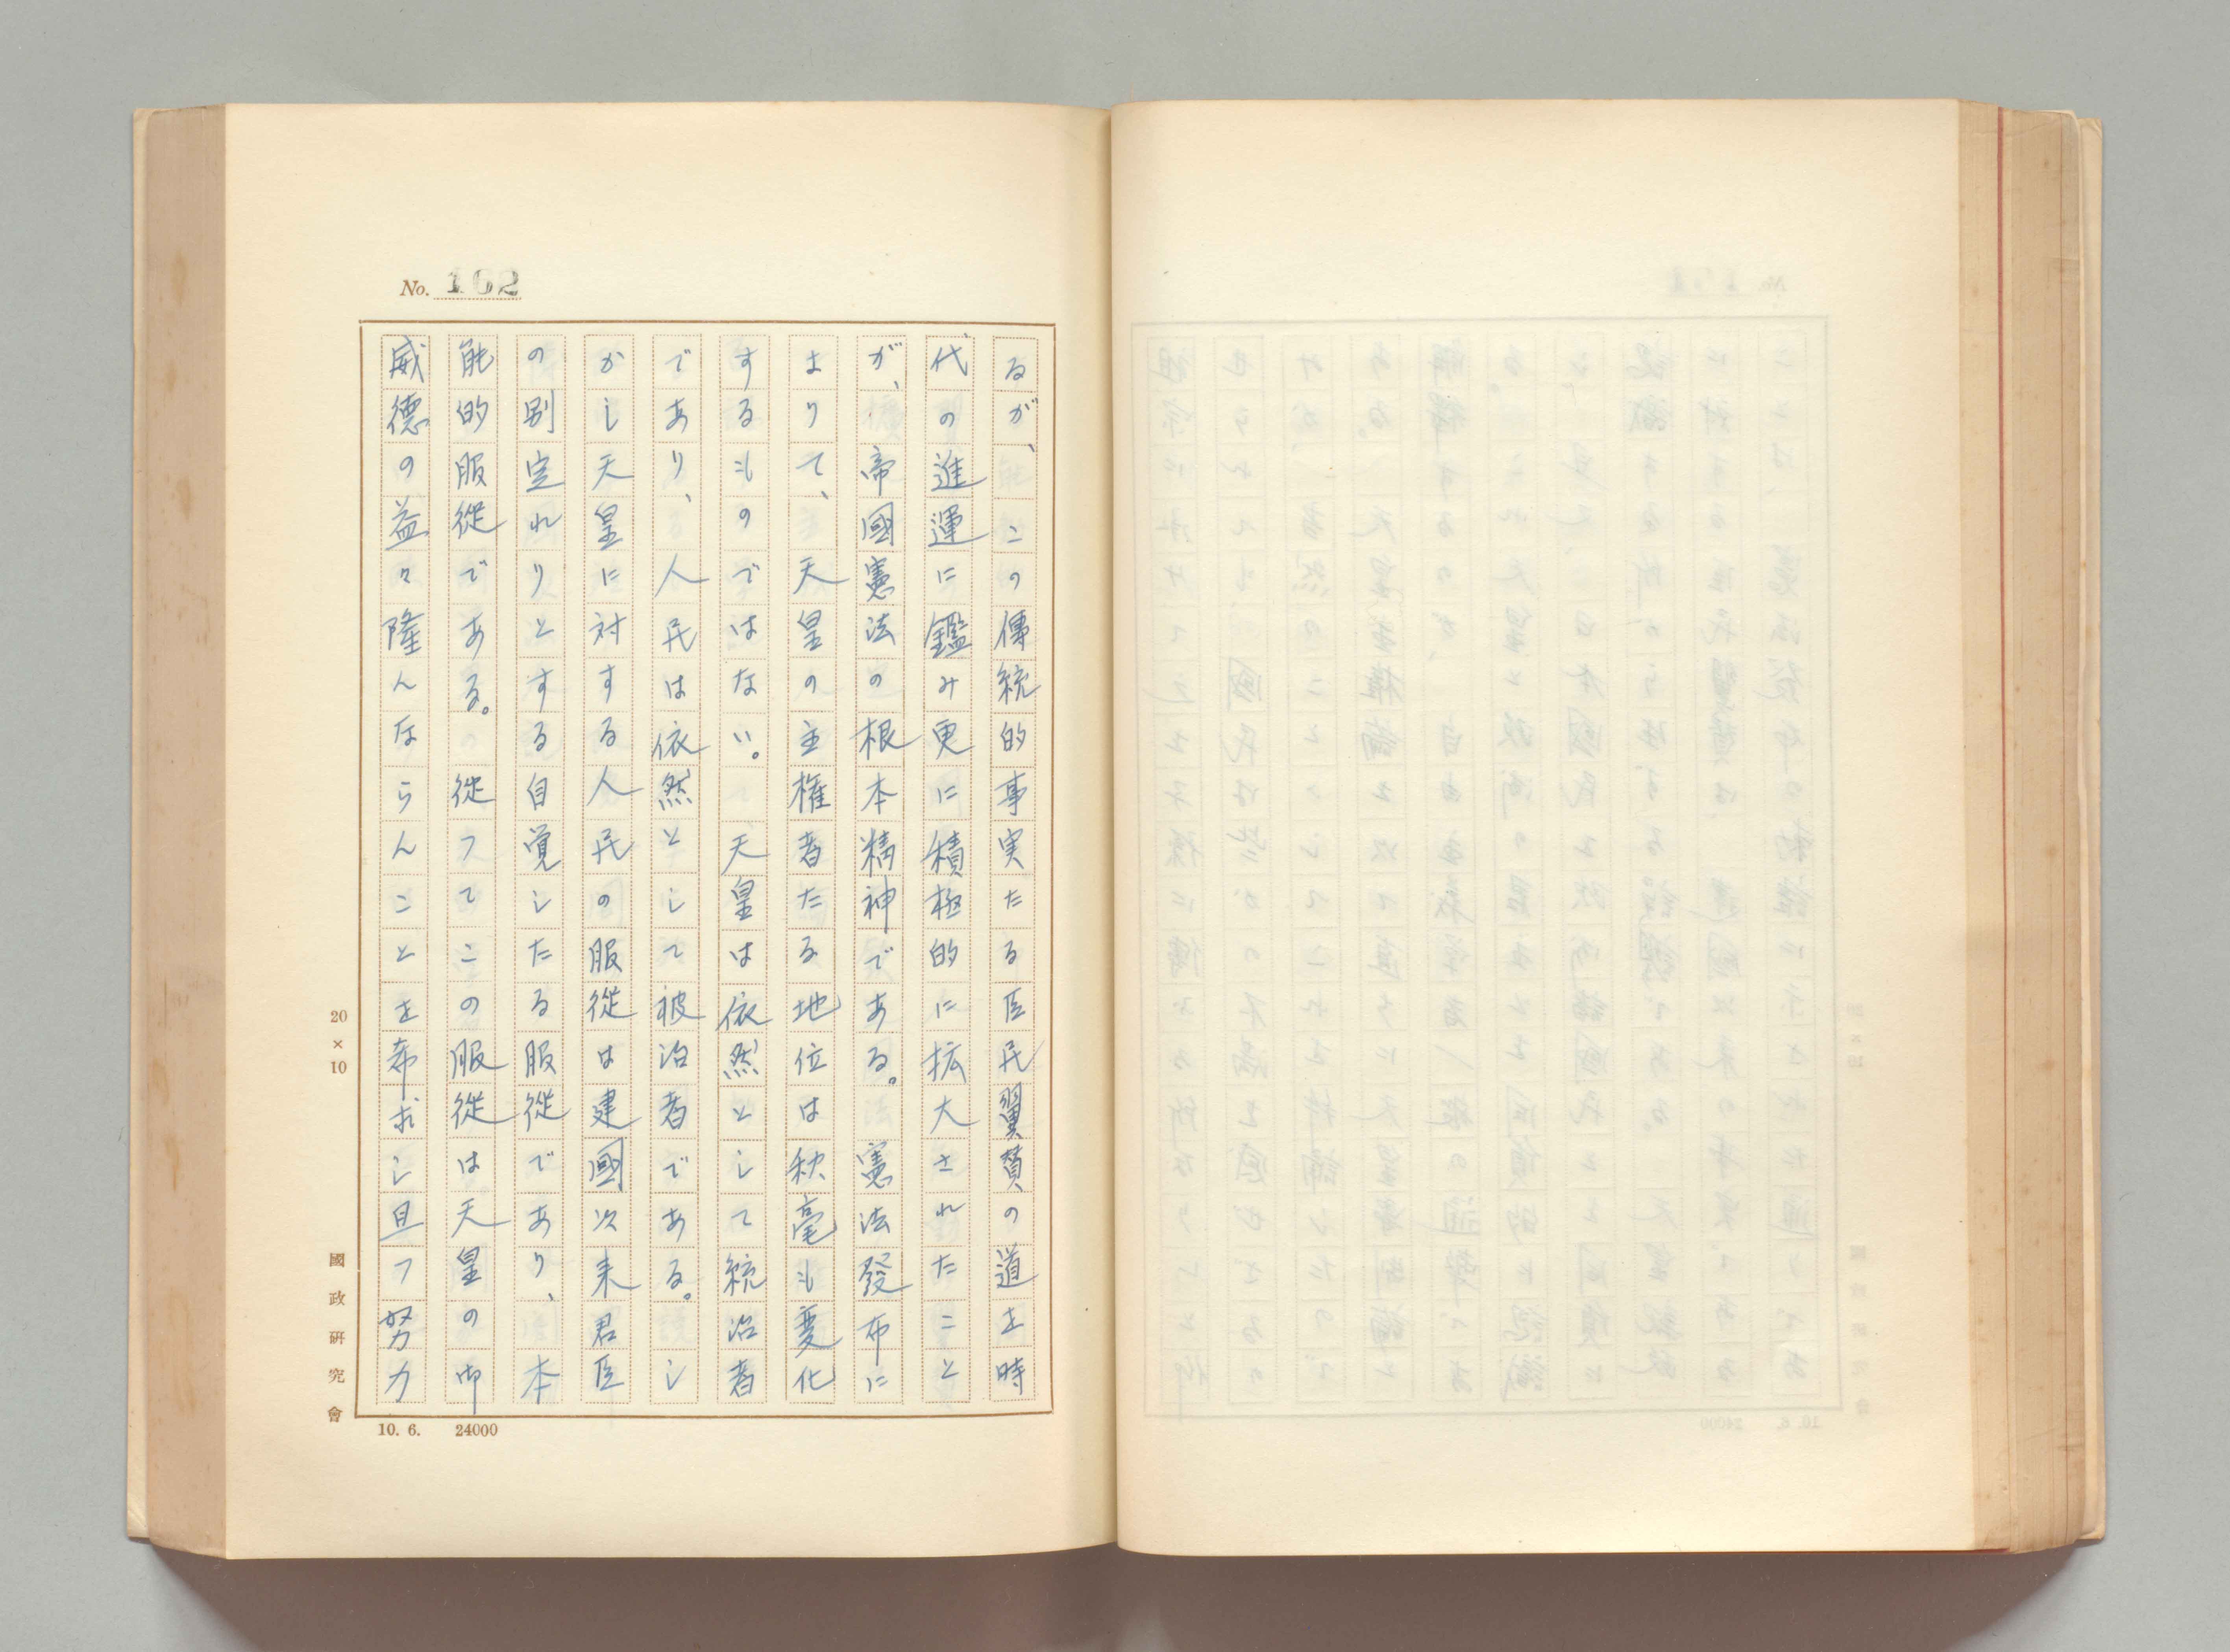 No. 162
るが、この傳統的事実たる臣民翼賛の道を時
代の進運に鑑み更に積極的に拡大されたこと
が、帝國憲法の根本精神である。憲法發布に
よりて、天皇の主権者たる地位は秋毫も変化
するものではない。天皇は依然として統治者
であり、人民は依然として被治者である。し
かし天皇に対する人民の服從は建國次来君臣
の別定れりとする自覚したる服從であり、本
能的服從である。從つてこの服從は天皇の御
威德の益々隆んならんことを希求し且つ努力
20×10
國政硏究會
10. 6. 24000